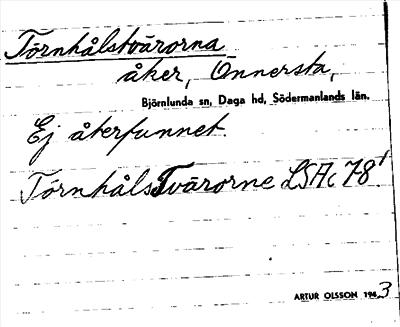 Törnhålstvärorna
åker, Önnersta,
Björnlunda sn, Daga hd, Södermanlands län.
Ej återfunnet.
TörnhålsTvärorne LSAc 78'
ARTUR OLSSON 1943